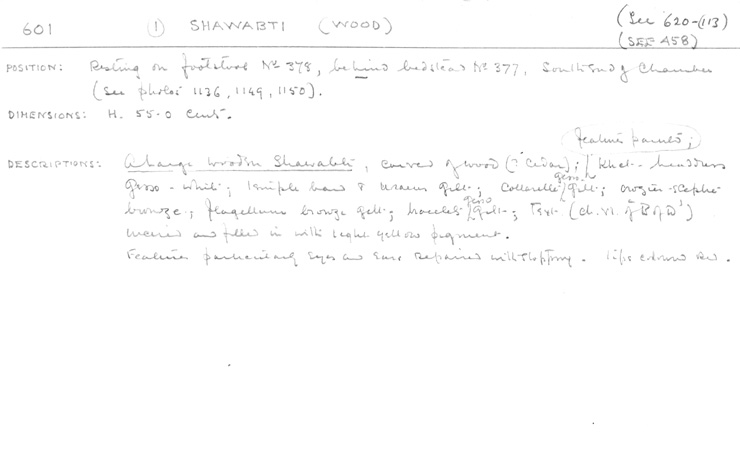 601 ① SHAWABTI (WOOD) (See 620-(113)
(SEE 458)
POSITION: Resting on footstool No 378, behind bedstead No 377, South end of Chamber
(See photos 1136, 1149, 1150).
DIMENSIONS: H. 55.0 cent.
features painted;
DESCRIPTIONS: A large wooden Shawabti, carved of wood (? Cedar); Khat-headdress
gesso - white; temple band & uraeus gilt; Collarette gesso & gilt; crozier-sceptre
bronze; flagellum bronze gilt; bracelets gesso gilt; Text (ch. VI. of B of D)
incised and filled in with light yellow pigment.
Features particularly eyes and ears repaired with. Lips coloured red.